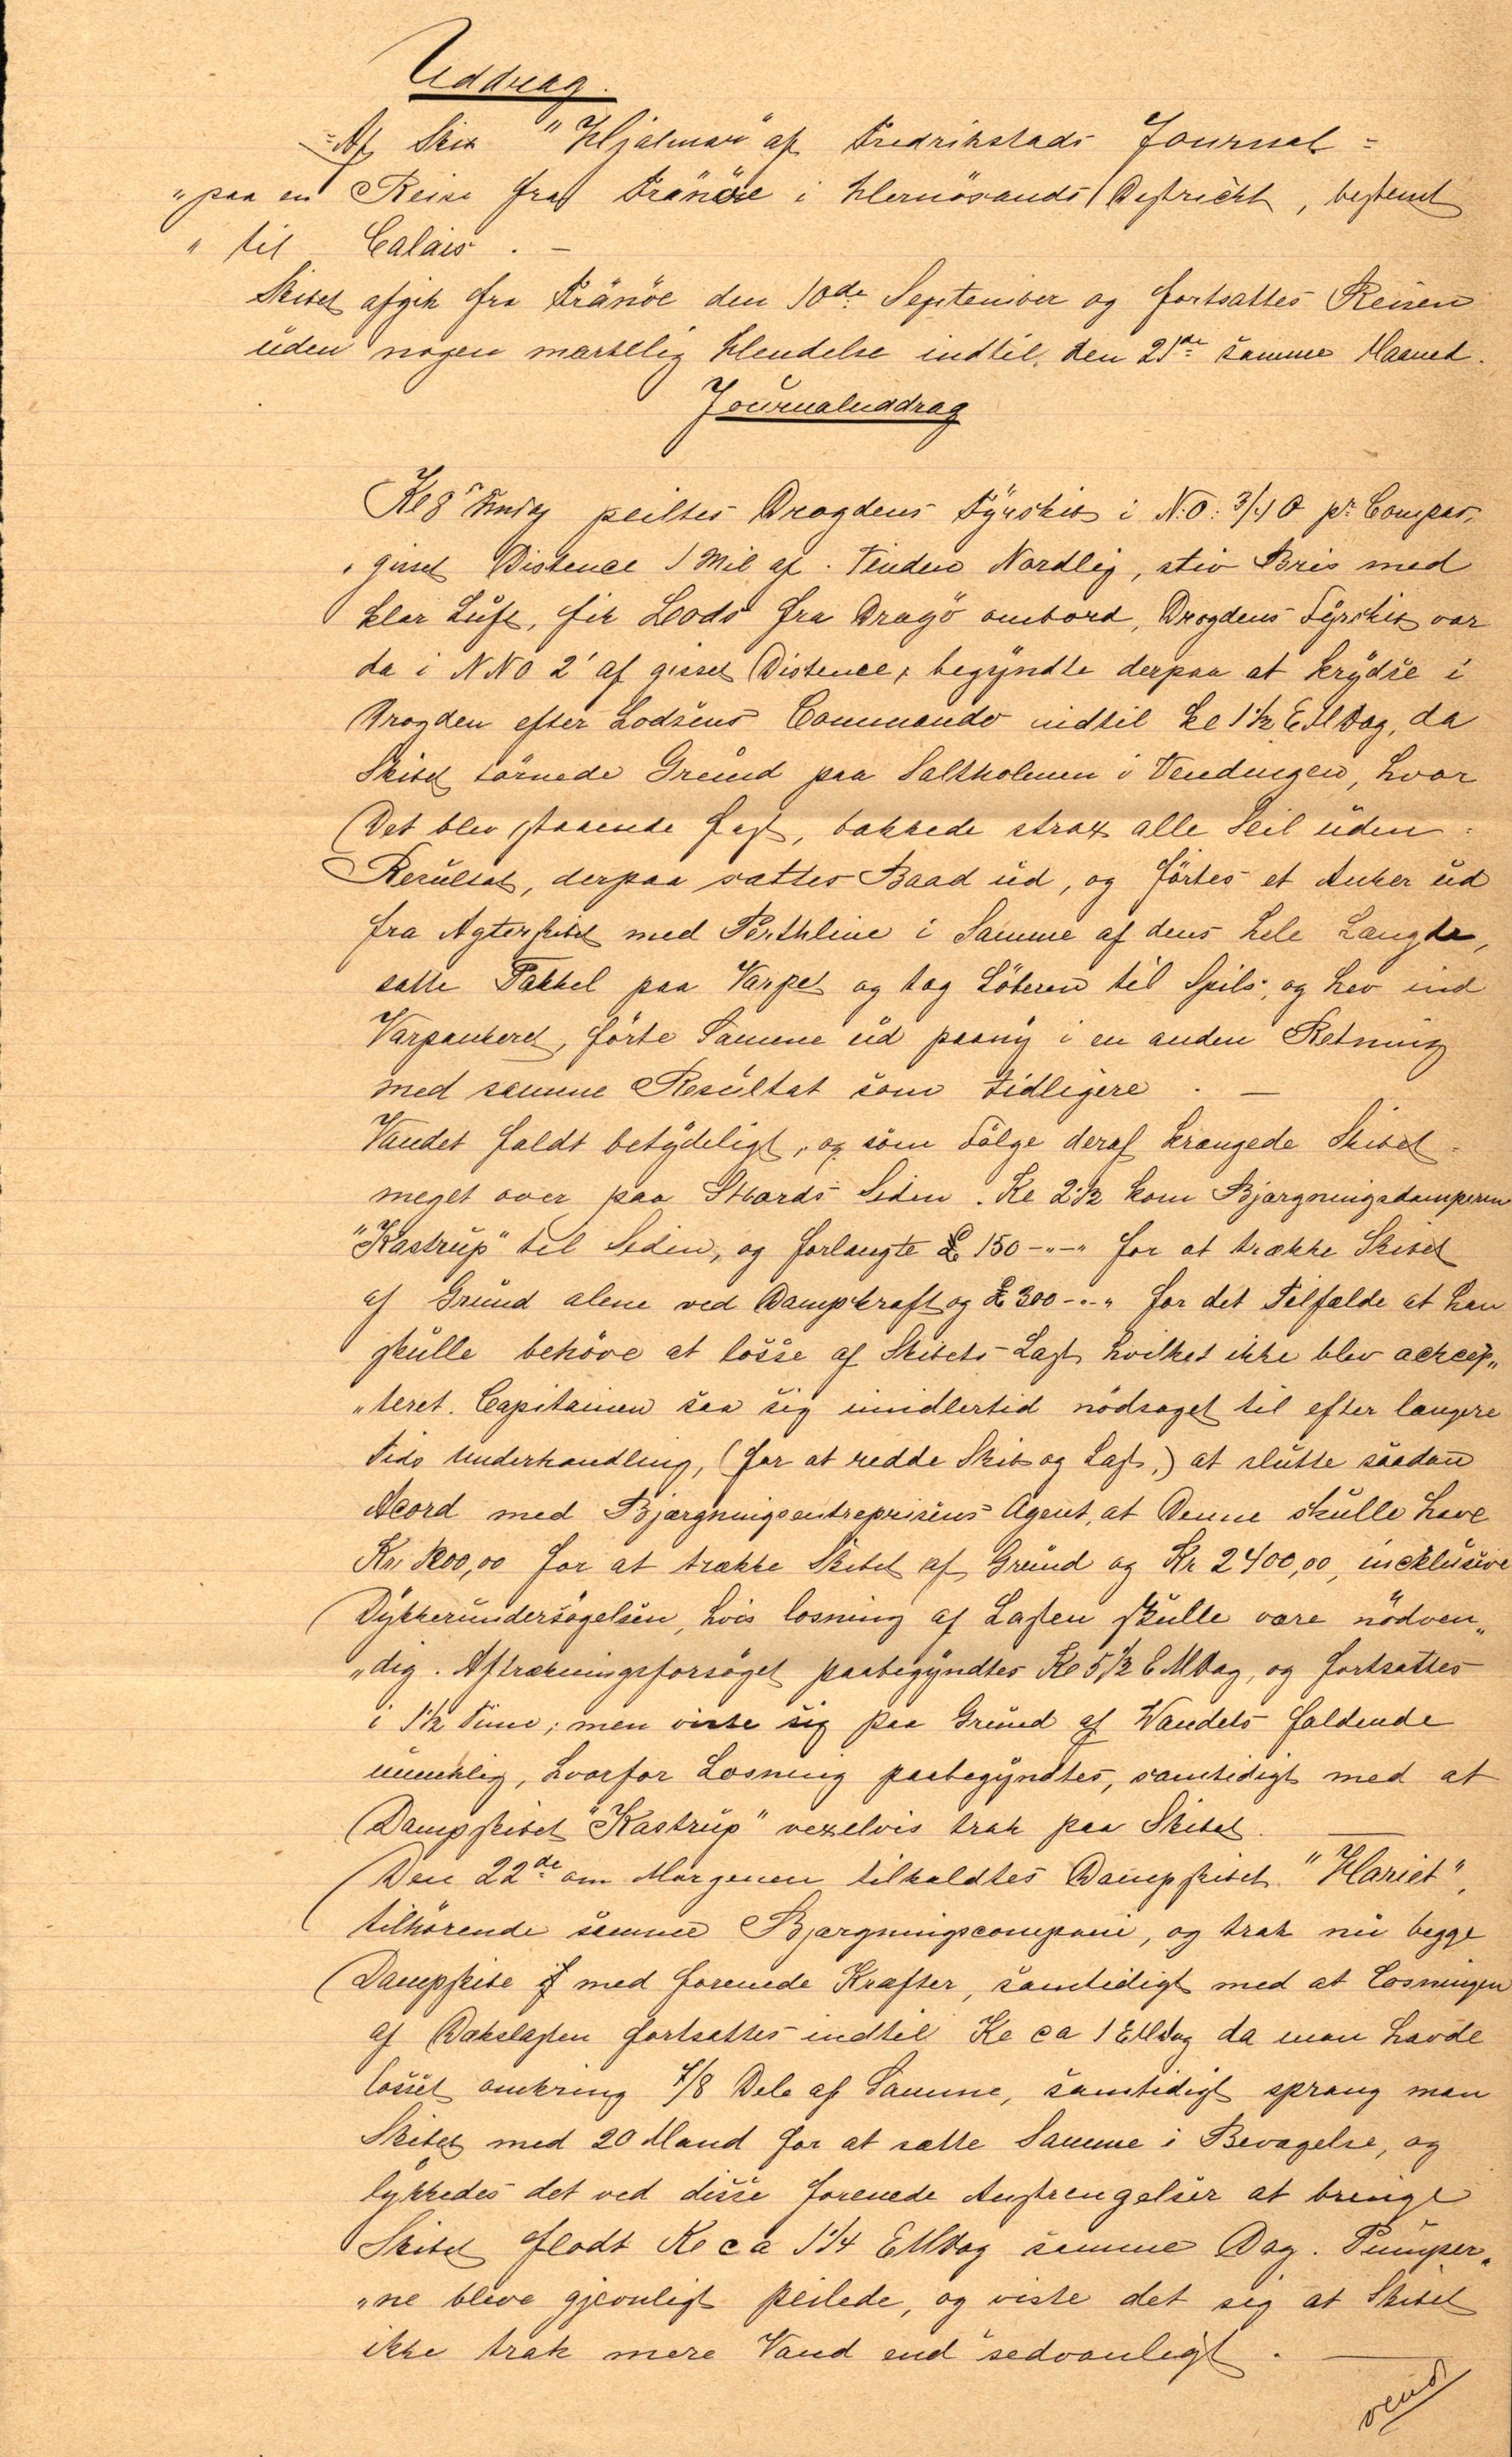 Uddrag.
Af Skib "Hjalmar" af Fredrikstads Journal =
" paa en Reise fra Fränöe i Hernösands Destrickt, bestemt
" til Calais. —
Skibet afgik fra Fränöe den 10de September og fortsattes Reisen
uden nogen mærkelig Hendelse indtil, den 21de samme Maaned.
Journaluddrag
Kl 8 Fmdg peiltes Drogdens Fyrskib i N.O. 3/4 O pr Compas,
gisset Distence 1 Mil af. Vinden Nordlig, stiv Bris med
klar Luft, fik Lods fra Dragö ombord, Drogdens Fyrskib var
da i NNO 2' af gisset Distence, begyndte derpaa at krydse i
Drogden efter Lodsens Commando indtil kl 1½ EMDag, da
Skibet tørnede Grund paa Saltholmen i Vendingen, hvor
Det blev staaende fast, bakkede strax alle Seil uden
Resultat, derpaa sattes Baad ud, og førtes et Anker ud
fra Agterskibet med Perthline i Samme af dens hele Længde,
satte Takkel paa Varpet og tog Løberen til Spils, og hev ind
Varpankeret, førte Samme ud paany i en anden Retning
med samme Resultat som tidligere. —
Vandet faldt betydeligt, og som Følge deraf krængede Skibet
meget over paa Stbords Siden. Kl 2½ kom Bjærgningsdamperen
"Kastrup" til Siden, og forlangte £ 150-"-" for at trække Skibet
af Grund alene ved Dampkraft og £ 300-"-" for det Tilfælde at han
skulle behøve at losse af Skibets Last, hvilket ikke blev accep„
„teret. Capitainen saa sig imidlertid nødsaget til efter længere
Tids Underhandling, (for at redde Skib og Last,) at slutte saadan
Acord med Bjærgningsentreprisens Agent, at Denne skulle have
Kr. 1200,00 for at trække Skibet af Grund og Kr 2400,00, incklusive
Dykkerundersøgelsen, hvis losning af Lasten skulle være nødven„
„dig. Aftrækningsforsøget paabegyndtes Kl 5½ EMDag, og fortsattes
i 1½ Time; men viste sig paa Grund af Vandets faldende
umuhlig, hvorfor Losning paabegyndtes, samtidigt med at
Dampskibet "Kastrup" vexelvis trak paa Skibet.
Den 22de om Morgenen tilkaldtes Dampskibet "Hariet",
tilhørende samme Bjærgningscompani, og trak nu begge
Dampskibe med forenede Kræfter, samtidigt med at Losningen
af Dækslasten fortsattes indtil Kl ca 1 EMDag da man havde
losset omkring 7/8 Dele af Samme, samtidigt sprang man
Skibet med 20 Mand for at sætte Samme i Bevægelse, og
lykkedes det ved disse forenede Anstrengelser at bringe
Skibet flodt Kl ca 1¼ EMDag samme Dag. Pumper„
„ne bleve gjevnligt peilede, og viste det sig at Skibet
ikke trak mere Vand end sedvanligt. —
vend